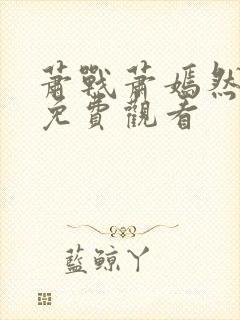 蕭戰蕭嫣然
免費觀看
藍鯨丫